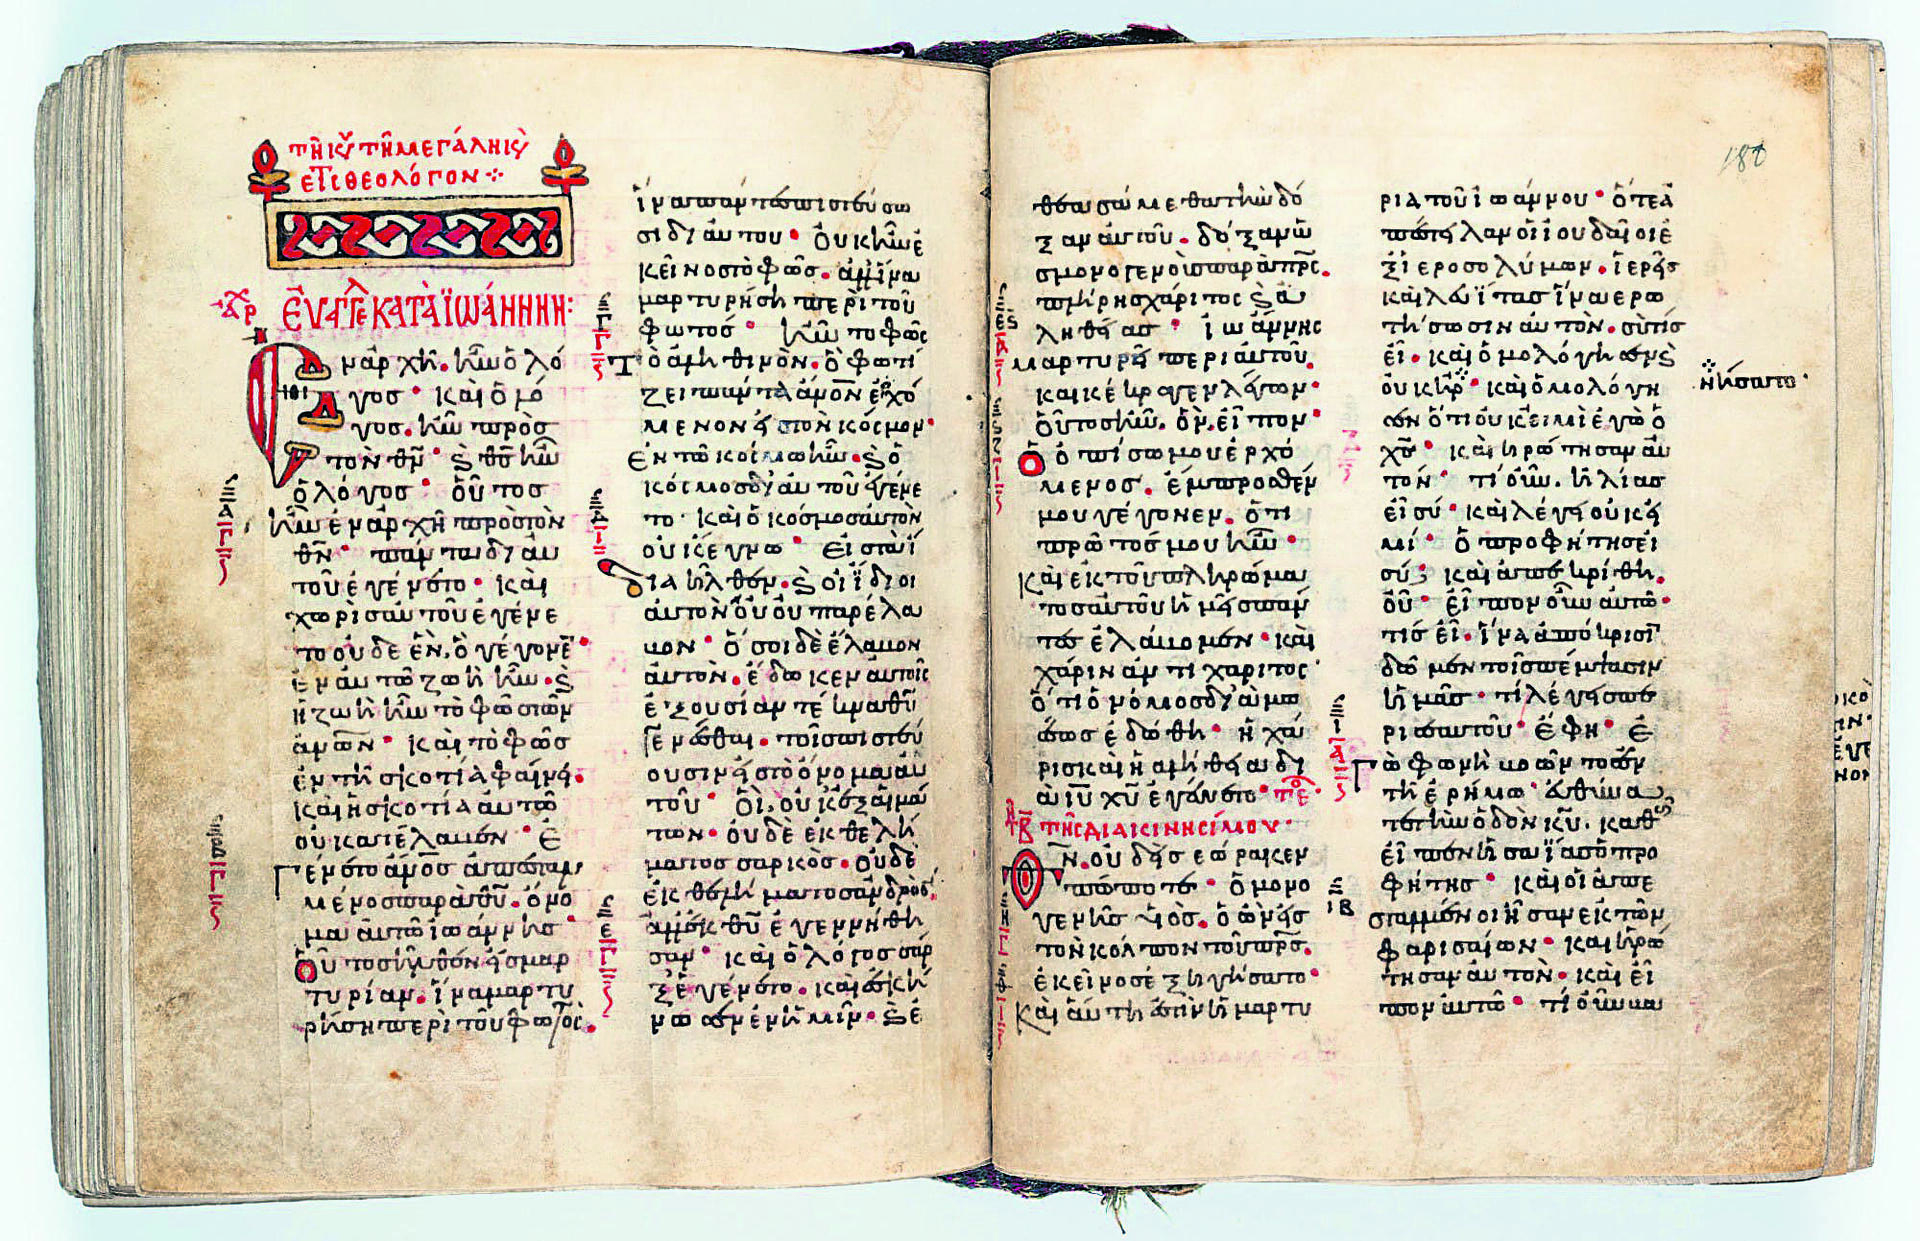 τῆ κυ τῆ μεγάλη κυ
ετι θεολόγον
χρ Εὐαγγε κατὰ ϊωάννην:
Ἐν ἀρχῆ. ἦν ὁ λό
γος· καὶ ὁ λό
γος. ἦν πρὸς
τὸν θν̅· ϗ θς̅ ἦν
ὁ λόγος· οὗτος
ἦν ἐν ἀρχῆ πρὸς τὸν
θν̅· πάντα δι αυ
τοῦ ἐγένετο· καὶ
χωρὶς αὐτοῦ ἐγένε
το οὐδε ἓν. ὃ γέγονε̅·
ἐν αὐτῶ ζωὴ ἦν. ϗ
ἡ ζωὴ ἦν τὸ φῶς τῶν
ἀνω̅ν· καὶ τὸ φῶς
ἐν τῆ σκοτία φαίνει.
καὶ ἡ σκοτία αὐτὸ
οὐ κατέλαβεν· Ἐ
γένετο ἄνο̅ς ἀπεσταλ
μένος παρὰ θυ̅. ὄνο
μα αὐτῶ ἰωάννης
Οὗτος ἦλθεν εἰς μαρ
τυρίαν. ἵνα μαρτυ
ρήση περὶ τοῦ φωτός.
ἵνα πάντες πιστεύσω
σι δι αὐτου· οὐκ ἦν ἐ
κεῖνος τὸ φῶς. ἀλλ ἵνα
μαρτυρήση περὶ τοῦ
φωτός· ἦν το φῶς
τὸ ἀληθινὸν. ὃ φωτί
ζει πάντα ἄνο̅ν ἐρχό
μενον εἰς τὸν κόσμον·
Ἐν τῶ κόσμω ἦν. ϗ ὁ
κόσμος δι αὐτοῦ ἐγένε
το· καὶ ὁ κόσμος αὐτὸν
οὐκ ἔγνω· Εἰς τὰ ἴ
δια ἦλθεν. ϗ οἱ ἴδιοι
αὐτὸν οὐ παρέλα
βον· ὅσοι δὲ ἔλαβον
αὐτὸν. ἔδωκεν αὐτοῖς
ἐξουσίαν τέκνα θυ̅
γενέσθαι. τοῖς πιστεύ
ουσιν εἰς τὸ ὄνομα αὐ
τοῦ· οἳ. οὐκ ἐξ αἱμά
των. οὐδὲ ἐκ θελή
ματος σαρκὸς. οὐδὲ
ἐκ θελήματος ἀνδρὸς.
ἀλλ ἐκ θυ̅ ἐγεννήθη
σαν· καὶ ὁ λόγος σὰρ
ξ ἐγένετο. καὶ ἐσκή
νωσεν ἐν ἡμῖν. ϗ ἐ
θεασάμεθα τὴν δό
ξαν αὐτοῦ. δόξαν ὡ
ς μονογενοῦς παρὰ πρς̅.
πλήρης χάριτος ϗ ἀ
ληθείας· ἰωάννης
μαρτυρεῖ περι αὐτοῦ.
και κέκραγεν λέγων·
οὗτος ἦν. ὃν. εἶπον·
ὁ ὀπίσω μου ἐρχό
μενος. ἔμπροσθέν
μου γέγονεν. ὅτι
πρῶτός μου ἦν·
καὶ ἐκ τοῦ πληρώμα
τος αὐτοῦ ἡμεῖς πάν
τες ἐλάβομεν· καὶ
χάριν ἀντι χάριτος·
ὅτι ὁ νόμος δι α μω
σέως ἐδόθη· ἡ χά
ρις καὶ ἡ ἀλήθεια δι
α ιυ̅ χυ̅ ἐγένετο· τε
τῆς διακινησίμου·
Θν̅. οὐδεὶς εώρακεν
πώποτε· ὁ μονο
γενὴς υἱὸς. ὁ ὢν εἰς
τὸν κόλπον τοῦ πρς̅.
ἐκεῖνος ἐξηγήσατο·
Καὶ αὕτη ἐστὶν ἡ μαρτυ
ρια τοῦ ἰωάννου· ὅτε ἀ
πέστειλαν οἱ ἰουδαῖοι ἐ
ξ ἱεροσολύμων. ἱερεῖς
καὶ λευΐτας ἵνα ερω
τήσωσιν αὐτὸν. σὺ τίς
εἶ. καὶ ὁμολόγησεν ϗ
οὐκ ἠρ· καὶ ὁμολόγη
σεν ὅτι οὐκ εἰμὶ ἐγὼ ὁ
χς̅· καὶ ἠρώτησαν αὐ
τόν· τί οὖν. ἠλίας
εἶ σύ· καὶ λέγει οὐκ εἰ
μί· ὁ προφήτης εἶ
σύ; καὶ ἀπεκρίθη.
οὔ· εἶπον οὖν αὐτῶ·
τίς εἶ. ἵνα ἀπόκρισι̅
δῶμεν τοῖς πέμψασιν
ἡμᾶς· τί λέγεις πε
ρι σεαυτοῦ· ἔφη· Ἐ
γὼ φωνὴ βοῶντος ἐν
τῆ ἐρήμω· εὐθύνα
τε τὴν ὁδὸν κυ̅. καθ
εἶπεν ἡσαΐας ὁ προ
φήτης· καὶ οἱ ἀπε
σταλμένοι ἦσαν ἐκ τῶν
φαρισαίων· καὶ ἠρώ
τησαν αὐτὸν. καὶ εἶ
πον αὐτῶ· τί οὖν βα
ἠρνήσατο·
180